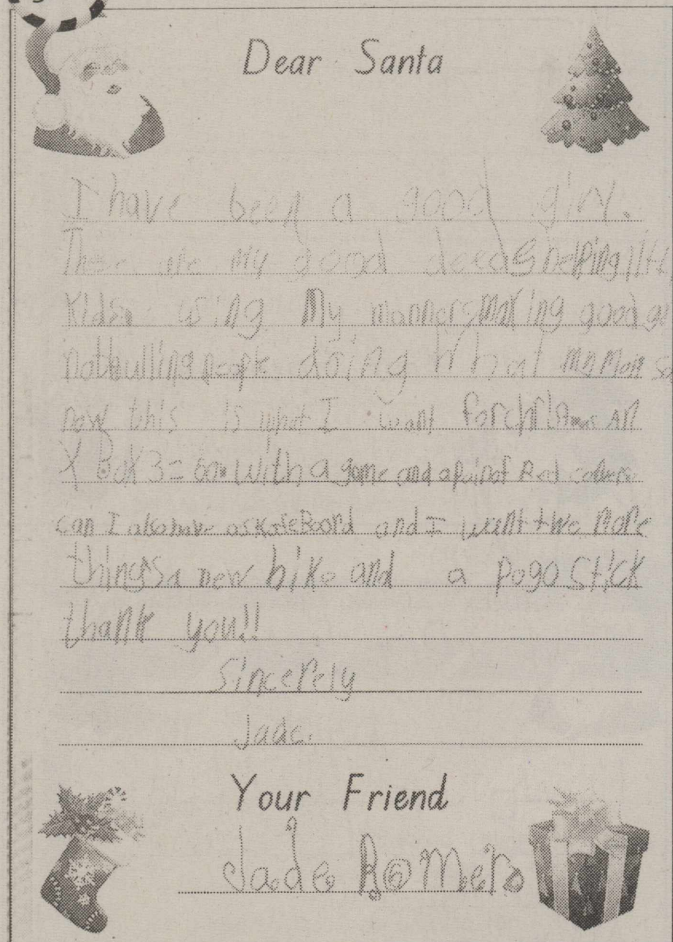 Dear Santa
I have been a good girl.
These are my good deeds helping
Kids using My manners making good
not bulling people doing what my mom
now this is what I want for christmas an
X Box 3 with a game and a pair of Red
can I also have a skateBoard and I want two more
things a new bike and a pogo stick
thank you!!
Sincerely
Jade.
Your Friend
Jade Romero